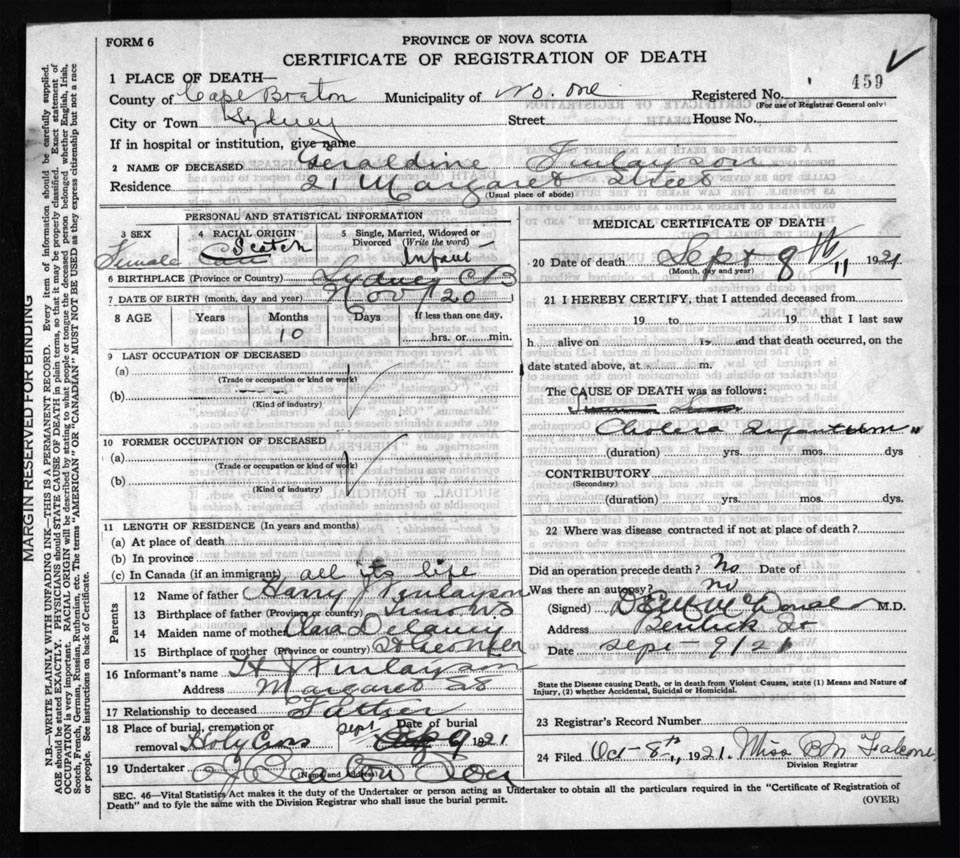 FORM 6
PROVINCE OF NOVA SCOTIA
CERTIFICATE OF REGISTRATION OF DEATH
1 PLACE OF DEATH—
County of Cape Breton Municipality of No. One Registered No. 459
(For use of Registrar General only)
City or Town Sydney Street House No.
If in hospital or institution, give name
2 NAME OF DECEASED Geraldine Finlayson
Residence 21 Margaret Street
(Usual place of abode)
PERSONAL AND STATISTICAL INFORMATION
3 SEX Female
4 RACIAL ORIGIN Scotch
5 Single, Married, Widowed or Divorced (Write the word) Infant
6 BIRTHPLACE (Province or Country) Sydney C B
7 DATE OF BIRTH (month, day and year) Nov 1920
8 AGE Years Months Days If less than one day,
10 hrs. or min.
9 LAST OCCUPATION OF DECEASED
(a)
(Trade or occupation or kind or work)
(b)
(Kind of industry)
10 FORMER OCCUPATION OF DECEASED
(a)
(Trade or occupation or kind of work)
(b)
(Kind of industry)
11 LENGTH OF RESIDENCE (In years and months)
(a) At place of death
(b) In province
(c) In Canada (if an immigrant) all its life
Parents
12 Name of father Harry J Finlayson
13 Birthplace of father (Province or country)
14 Maiden name of mother Clara Delaney
15 Birthplace of mother (Province or country)
16 Informant's name H J Finlayson
Address Margaret St
17 Relationship to deceased Father
18 Place of burial, cremation or removal Holy Cross Date of burial Sept 9 1921
19 Undertaker
(Name and Address)
MEDICAL CERTIFICATE OF DEATH
20 Date of death Sept 8th 1921
(Month, day and year)
21 I HEREBY CERTIFY, that I attended deceased from
19 to 19 that I last saw
h alive on 19 and that death occurred, on the
date stated above, at m.
The CAUSE OF DEATH was as follows:
Cholera Infantum
(duration) yrs. mos. dys
CONTRIBUTORY
(Secondary)
(duration) yrs. mos. dys.
22 Where was disease contracted if not at place of death?
Did an operation precede death? No Date of
Was there an autopsy? No
(Signed) McDonald M.D.
Address Bentick St
Date Sept 9/21
State the Disease causing Death, or in death from Violent Causes, state (1) Means and Nature of
Injury, (2) whether Accidental, Suicidal or Homicidal.
23 Registrar's Record Number
24 Filed Oct 8th 1921. Miss B M Falconer
Division Registrar
SEC. 46—Vital Statistics Act makes it the duty of the Undertaker or person acting as Undertaker to obtain all the particulars required in the "Certificate of Registration of
Death" and to fyle the same with the Division Registrar who shall issue the burial permit.
(OVER)
MARGIN RESERVED FOR BINDING
N.B.—WRITE PLAINLY WITH UNFADING INK—THIS IS A PERMANENT RECORD. Every item of information should be carefully supplied.
AGE should be stated EXACTLY. PHYSICIANS should STATE CAUSE OF DEATH in plain terms, so that it may be properly classified. Exact statement of
OCCUPATION is very important. RACIAL ORIGIN will be described by stating to what people or tongue the deceased person belonged whether English, Irish,
Scotch, French, German, Russian, Ruthenian, etc. The terms "AMERICAN" OR "CANADIAN" MUST NOT BE USED as they express citizenship but not a race
or people. See instructions on back of Certificate.